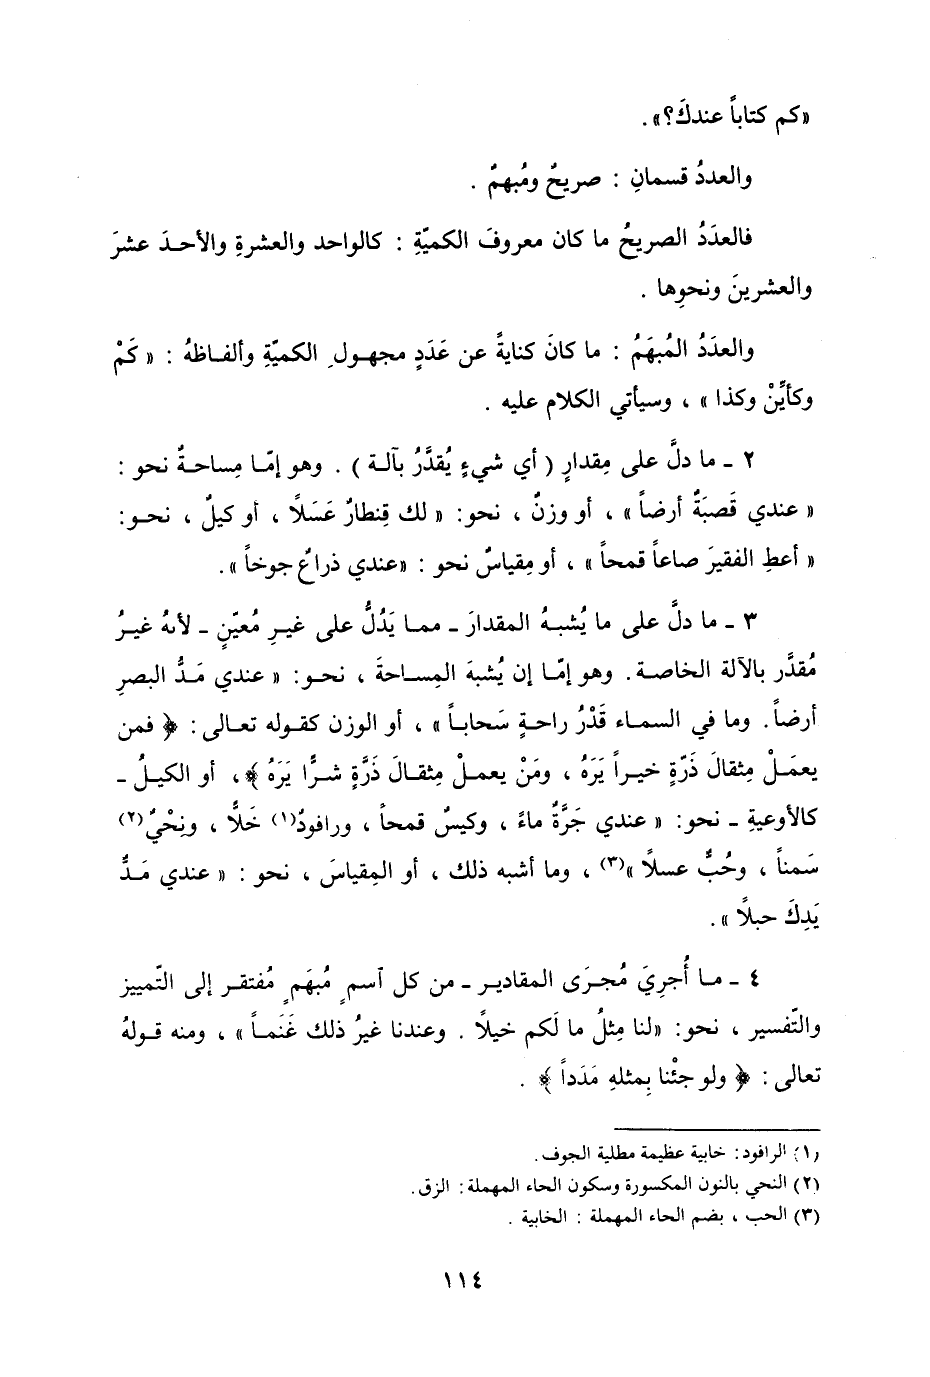 «كم كتاباً عندكَ؟».
والعددُ قسمانِ : صريحٌ ومُبهمٌ .
فالعدَدُ الصريحُ ما كان معروفَ الكميّةِ : كالواحد والعشرةِ والأحدَ عشرَ
والعشرينَ ونحوِها .
والعدَدُ المُبهَمُ : ما كانَ كنايةً عن عَدَدٍ مجهولِ الكميّةِ وألفاظهُ : « كَمْ
وكأيِّنْ وكذا » ، وسيأتي الكلام عليه .
٢ ـ ما دلَّ على مِقدارٍ ( أي شيءٍ يُقدَّرُ بآلة ) . وهو إمّا مِساحةٌ نحو :
« عندي قَصبَةٌ أرضاً » ، أو وزنٌ ، نحو: « لك قِنطارٌ عَسَلاً ، أو كيلٌ ، نحو:
« أعطِ الفقيرَ صاعاً قمحاً » ، أو مِقياسٌ نحو : «عندي ذراعٌ جوخاً ».
٣ ـ ما دلَّ على ما يُشبهُ المقدارَ ـ مما يَدُلُّ على غيرِ مُعيّنٍ ـ لأنهُ غيرُ
مُقدَّر بالآلة الخاصة. وهو إمّا إن يُشبهَ المِساحةَ ، نحو: « عندي مَدُّ البصرِ
أرضاً. وما في السماء قَدْرُ راحةٍ سَحاباً » ، أو الوزن كقوله تعالى : ﴿ فمن
يعمَلْ مِثقالَ ذَرّةٍ خيراً يَرَهُ ، ومَنْ يعملْ مِثقالَ ذَرَّةٍ شرًّا يَرَهُ ﴾، أو الكيلُ ـ
كالأوعيةِ ـ نحو: « عندي جَرَّةٌ ماءً ، وكيسٌ قمحاً ، ورافودٌ(١) خَلًّا ، ونِحْيٌ(٢)
سَمناً ، وحُبٌّ عسلاً »(٣) ، وما أشبه ذلك ، أو المِقياسَ ، نحو : « عندي مَدُّ
يَدِكَ حبلًا ».
٤ ـ ما أُجرِيَ مُجرَى المقادير ـ من كل آسمٍ مُبهَمٍ مُفتقر إلى التّمييز
والتّفسير ، نحو: «لنا مِثلُ ما لَكم خيلًا . وعندنا غيرُ ذلك غَنَماً » ، ومنه قولهُ
تعالى : ﴿ ولو جئْنا بِمثلهِ مَدَداً ﴾ .
(١) الرافود: خابية عظيمة مطلية الجوف.
(٢) النحي بالنون المكسورة وسكون الحاء المهملة : الزق.
(٣) الحب ، بضم الحاء المهملة : الخابية .
١١٤